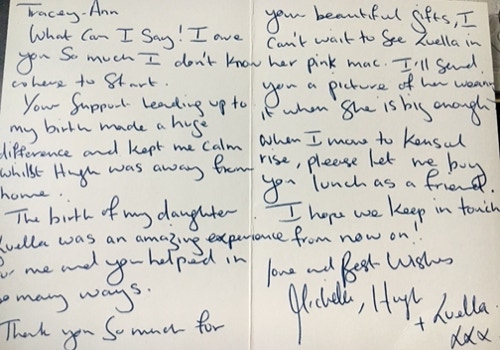 Tracey-Ann
What Can I Say! I owe
you So much I don't know
where to Start.
Your Support leading up to
my birth made a huge
difference and kept me calm
whilst Hugh was away from
home.
The birth of my daughter
Luella was an amazing experience
for me and you helped in
so many ways.
Thank you So much for
your beautiful gifts, I
Can't wait to See Luella in
her pink mac. I'll Send
you a picture of her wearing
it when She is big enough
when I move to Kensal
rise, please let me buy
you lunch as a friend
I hope we keep in touch
from now on!!
love and Best Wishes
Michelle, Hugh
+ Luella
xxx